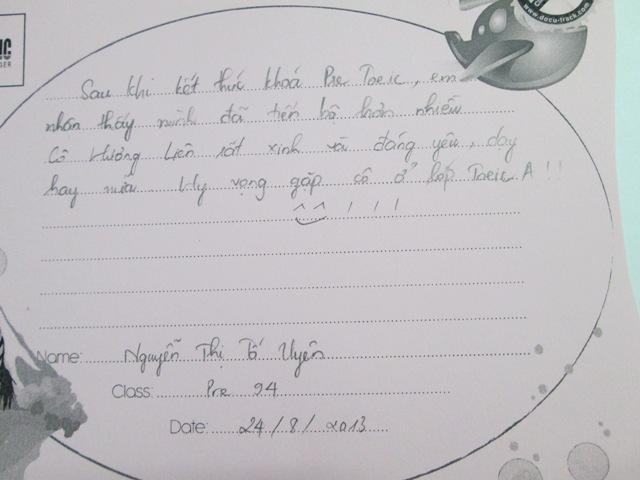 Sau khi kết thúc khoá Pre Toeic, em
nhận thấy mình đã tiến bộ hơn nhiều
Cô Hương Liên rất xinh và đáng yêu, dạy
hay nữa. Hy vọng gặp cô ở lớp Toeic A !!
^ ^ ! ! !
Name: Nguyễn Thị Tố Uyên
Class: Pre 94
Date: 24/8/2013
www.docu-track.com